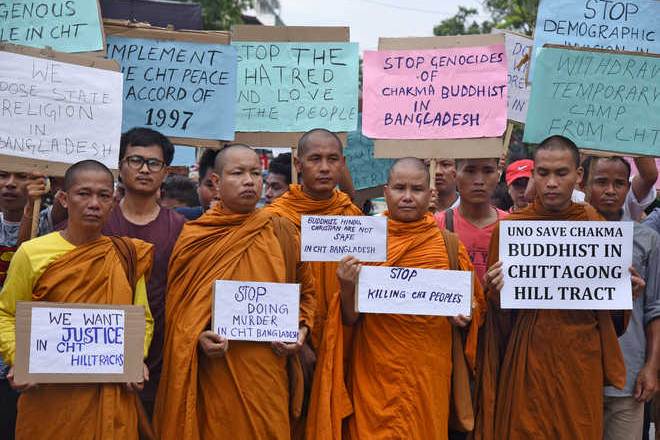 GENOUS
LE IN CHT
WE
POSE STATE
RELIGION
IN
BANGLADESH
IMPLEMENT
THE CHT PEACE
ACCORD OF
1997
STOP THE
HATRED
AND LOVE
THE PEOPLE
STOP GENOCIDES
OF
CHAKMA BUDDHIST
IN
BANGLADESH
STOP
DEMOGRAPHIC
WITHDRAW
TEMPORARY
CAMP
FROM CHT
WE WANT
JUSTICE
IN CHT
HILLTRACKS
STOP
DOING
MURDER
IN CHT BANGLADESH
BUDDHIST, HINDU,
CHRISTIAN ARE NOT
SAFE
IN CHT BANGLADESH
STOP
KILLING CHT PEOPLES
UNO SAVE CHAKMA
BUDDHIST IN
CHITTAGONG
HILL TRACT